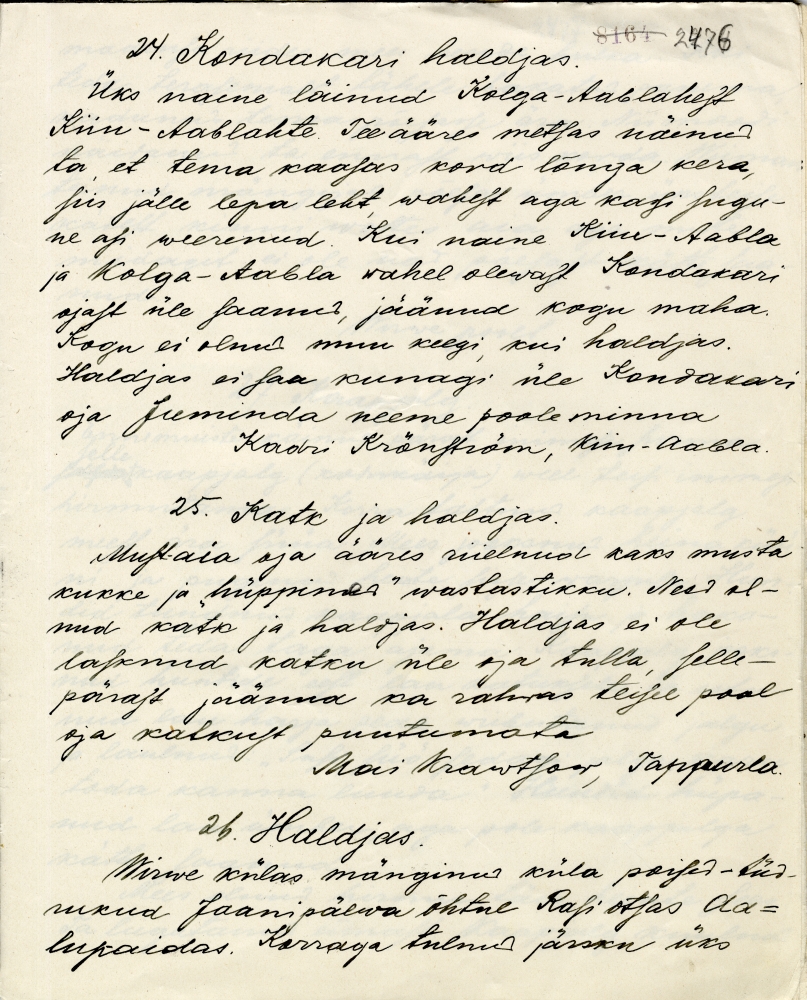 8164 2476
24. Kondakari haldjas.
Üks naine läinud Kolga-Aablahest
Kiiu-Aablahte. Tee ääres metsas näinud
ta, et tema kaasas kord lõnga kera,
siis jälle lepa leht, wahest aga kasi sugu-
ne asi weerenud. Kui naine Kiiu-Aabla
ja Kolga-Aabla wahel olewast Kondakari
ojast üle saanud, jäänud kogu maha.
Kogu ei olnud muu keegi, kui haldjas.
Haldjas ei saa kunagi üle Kondakari
oja Juminda neeme poole minna
Kadri Krönström, Kiiu-Aabla.
25. Katk ja haldjas.
Mustaia oja ääres riielnud kaks musta
kukke ja "hüppinud" wastastikku. Need ol-
nud katk ja haldjas. Haldjas ei ole
lasknud katku üle oja tulla, selle-
pärast jäänud ka rahwas teisel pool
oja katkust puutumata
Mai Krawtsow, Tappurla.
26. Haldjas.
Wirwe külas mänginud küla poisid-tüd-
rukud Jaanipäewa õhtul Rasi otsas Aa-
lupaidas. Korraga tulnud järsku üks